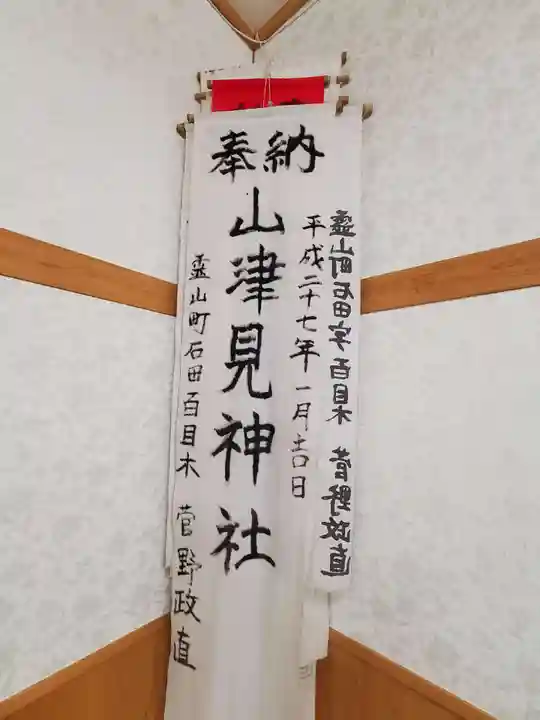 奉納
平成二十七年一月吉日
山津見神社
霊山町石田百目木 菅野政直
霊山町石田字百目木 菅野政直